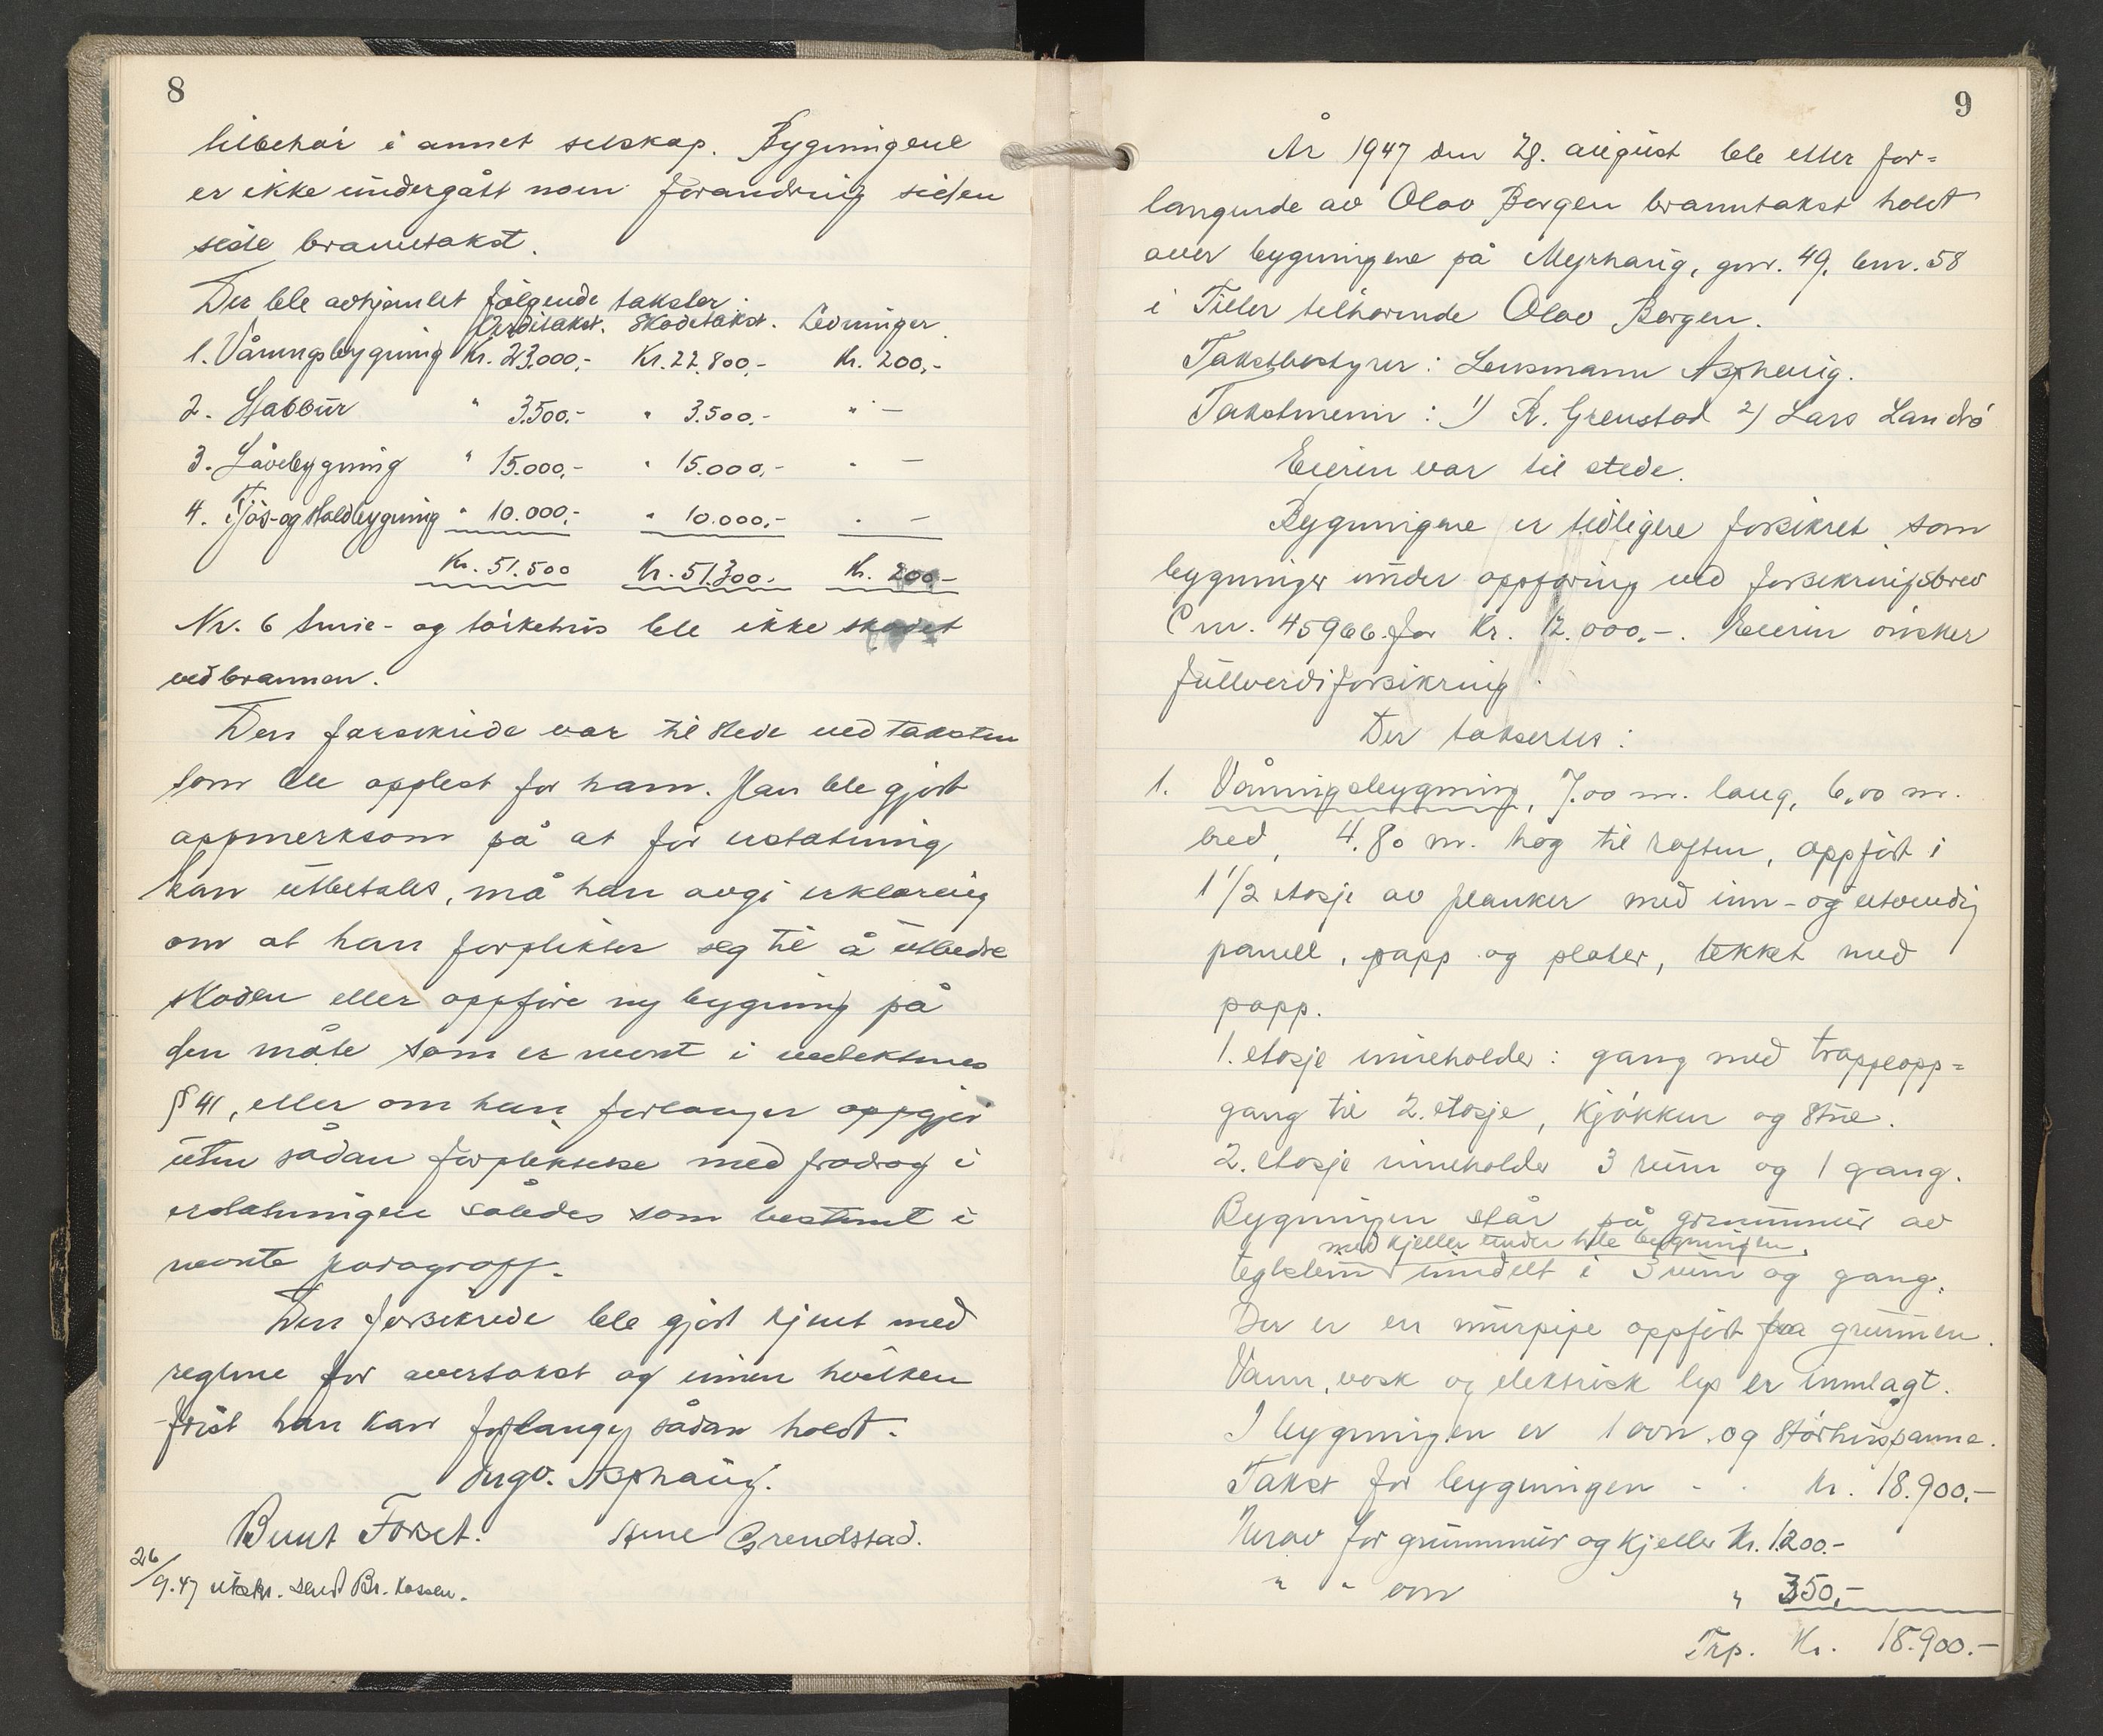 8
tilbehør i annet selskap. Bygningene
er ikke undergått noen forandring siden
siste branntakst.
Der ble avhjemlet følgende takster:
Verditakst. Skadetakst. Ledninger
1. Våningsbygning Kr. 23.000,- Kr. 22.800,- Kr. 200,-
2. Stabbur " 3.500,- " 3.500,- " -
3. Låvebygning " 15.000,- " 15.000,- " -
4. Fjøs- og stallbygning " 10.000,- " 10.000,- " -
Kr. 51.500 Kr. 51.300,- Kr. 200,-
Nr. 6 Smie- og tørkehus ble ikke skadet
ved brannen.
Den forsikrede var til stede ved taksten
som ble opplest for ham. Han ble gjort
oppmerksom på at før erstatning
kan utbetales, må han avgi erklæring
om at han forplikter seg til å utbedre
skaden eller oppføre ny bygning på
den måte som er nevnt i vedtektenes
§ 41, eller om han forlanger oppgjør
uten sådan forpliktelse med fradrag i
erstatningen således som bestemt i
nevnte paragraff.
Den forsikrede ble gjort kjent med
reglene for overtakst og innen hvilken
frist han kan forlange sådan holdt.
Ingv. Asphaug.
Bernt Forset. Arne Grendstad.
26/9.47 utskr. sendt Br. kassen.
9
År 1947 den 28. august ble etter for=
langende av Olav Borgen branntakst holdt
over bygningene på Myrhaug, gnr. 49, bnr. 58
i Tiller tilhørende Olav Borgen.
Takstbestyrer: Lensmann Asphaug.
Takstmenn: 1) R. Grenstad 2) Lars Landrø
Eieren var til stede.
Bygningene er tidligere forsikret som
bygninger under oppføring ved forsikringsbrev
C nr. 45966 for Kr. 12.000,-. Eieren ønsker
fullverdiforsikring.
Der taksertes:
1. Våningsbygning, 7.00 m. lang, 6,00 m.
bred, 4.80 m. høg til raften, oppført i
1 1/2 etasje av planker med inn- og utvendig
panell, papp og plater, tekket med
papp.
1. etasje inneholder: gang med trappeopp=
gang til 2. etasje, kjøkken og stue.
2. etasje inneholder 3 rum og 1 gang.
Bygningen står på grunnmur av
med kjeller under hele bygningen,
teglsten inndelt i 3 rum og gang.
Der er en murpipe oppført fra grunnen.
Vann, vask og elektrisk lys er innlagt.
I bygningen er 1 ovn og størhuspanne.
Takst for bygningen - - Kr. 18.900,-
Herav for grunnmur og kjeller Kr. 1200.-
" " ovn " 350,-
Trp. Kr. 18.900.-